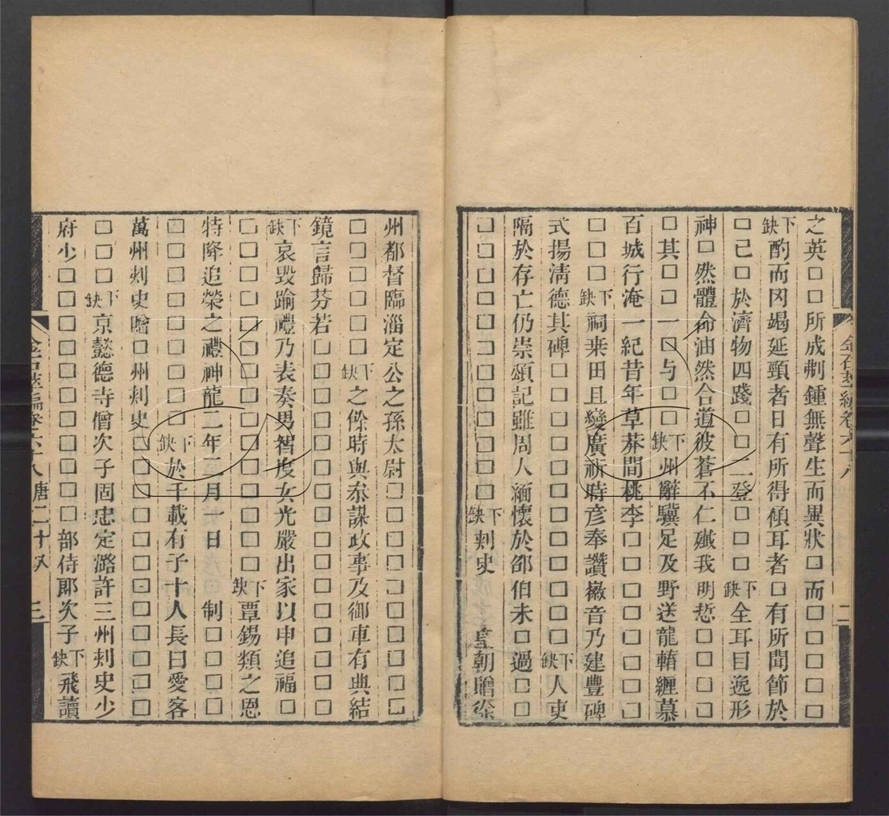 之英□□所成制鍾無聲生而異狀□而□□□□□
下缺酌而罔竭延頸者日有所得傾耳者□有所聞節於
□己□於濟物四踐□□二登□□□下缺全耳目逸形
神□然體命油然合道彼蒼不仁殲我明悊□□□□
□其□□一□与□□下缺州辭驥足及野送龍輴纏慕
百城行淹一紀昔年草莽間桃李□□□□□□□□
□□□下缺祠桒田且變廣祈時彦奉讚徽音乃建豐碑
式揚清德其碑□□□□□□□□□□□□下缺人吏
隔於存亡仍崇頌記雖周人緬懷於邵伯未□過□□
□□□□□□□□□□□□下缺刺史 皇朝贈徐
金石萃編卷六十八
二
州都督臨淄定公之孫太尉□□□□□□□□□□
□□□□□□下缺之傺時與叅謀政事及御車有典結
鏡言歸芬若□□□□□□□□□□□□□□□□
下缺哀毀踰禮乃表奏男智度女光嚴出家以申追福□
□□□□□□□□□□□□□□□下缺覃錫類之恩
特降追榮之禮神龍二年三月一日 制□□□□□
□□□□□□□□□下缺於千載有子十人長曰愛客
萬州刾史贈□州刾史□□□□□□□□□□□□
□□□下缺京懿德寺僧次子固忠定潞許三州刾史少
府少□□□□□□□□□□□部侍郎次子下缺飛讀
金石萃編卷六十八 唐二十八
三